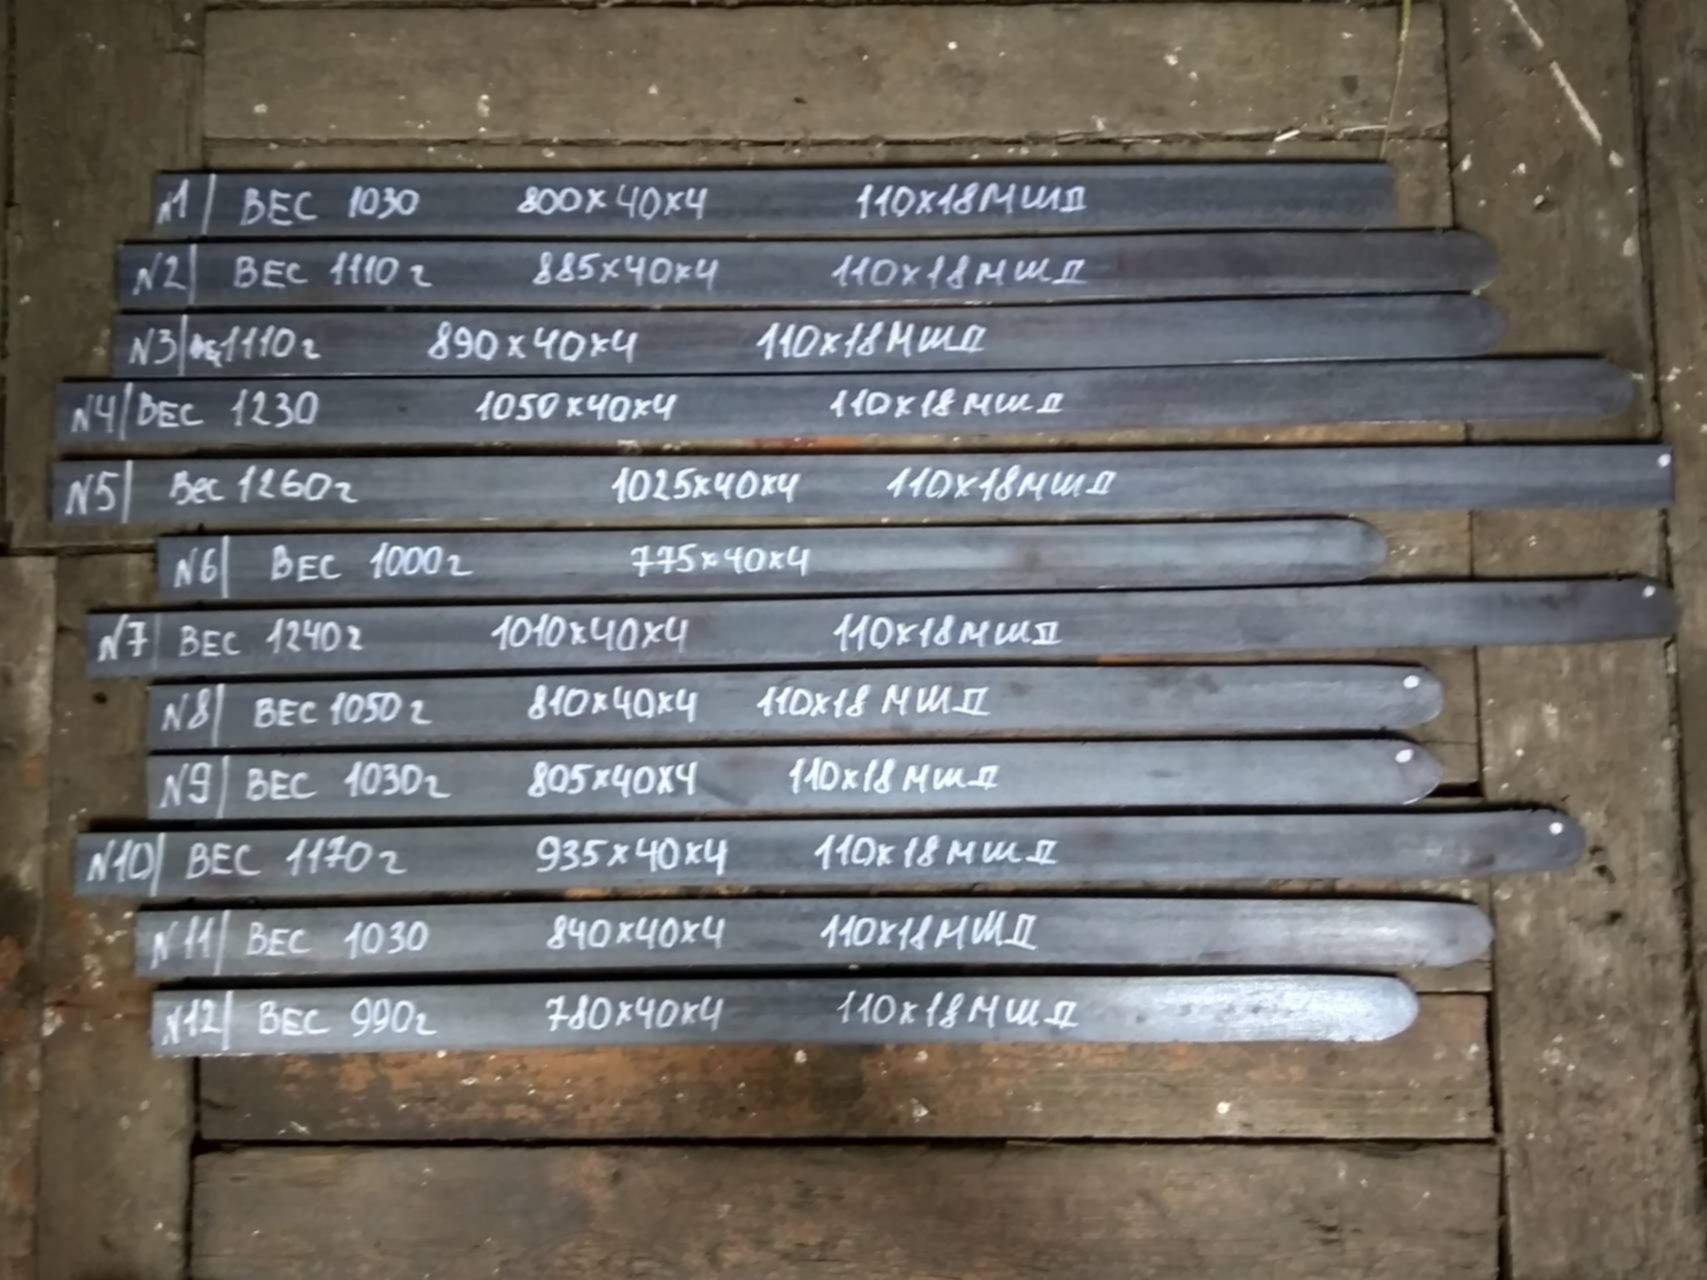 N1 ВЕС 1030 800х40х4 110х18МШД
N2 ВЕС 1110г 885х40х4 110х18МШД
N3 1110г 890х40х4 110х18МШД
N4 ВЕС 1230 1050х40х4 110х18МШД
N5 Вес 1260г 1025х40х4 110х18МШД
N6 ВЕС 1000г 775х40х4
N7 ВЕС 1240г 1010х40х4 110х18МШД
N8 ВЕС 1050г 810х40х4 110х18 МШД
N9 ВЕС 1030г 805х40х4 110х18МШД
N10 ВЕС 1170г 935х40х4 110х18МШД
N11 ВЕС 1030 840х40х4 110х18МШД
N12 ВЕС 990г 780х40х4 110х18МШД